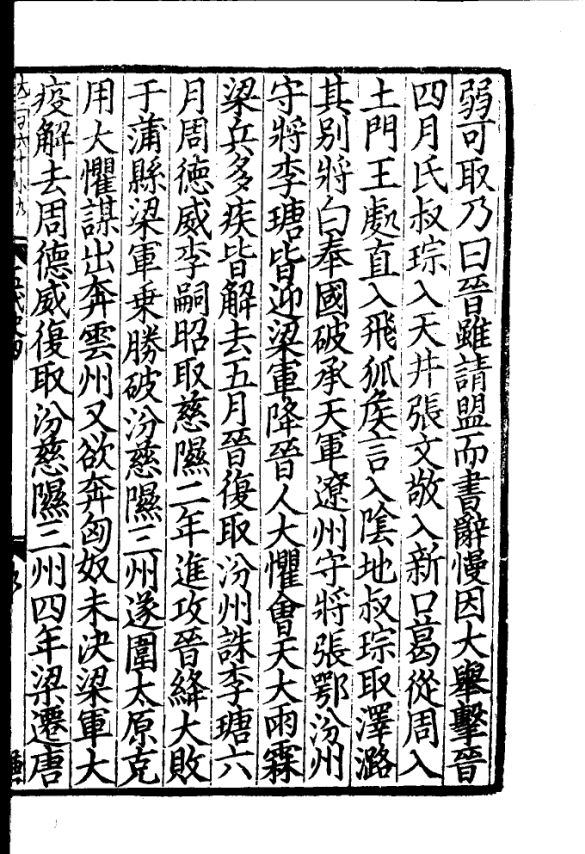 弱可取乃曰晉雖請盟而書辭慢因大舉擊晉
四月氏叔琮入天井張文敬入新口葛從周入
土門王處直入飛狐侯言入陰地叔琮取澤潞
其別將白奉國破承天軍遼州守將張鄂汾州
守將李瑭皆迎梁軍降晉人大懼會天大雨霖
梁兵多疾皆解去五月晉復取汾州誅李瑭六
月周德威李嗣昭取慈隰二年進攻晉絳大敗
于蒲縣梁軍乗勝破汾慈隰三州遂圍太原克
用大懼謀出奔雲州又欲奔匈奴未決梁軍大
疫解去周德威復取汾慈隰三州四年梁遷唐